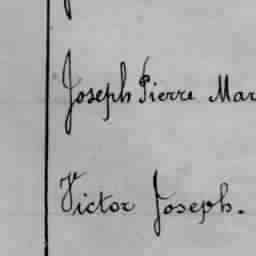 Joseph Pierre Mar
Victor Joseph.